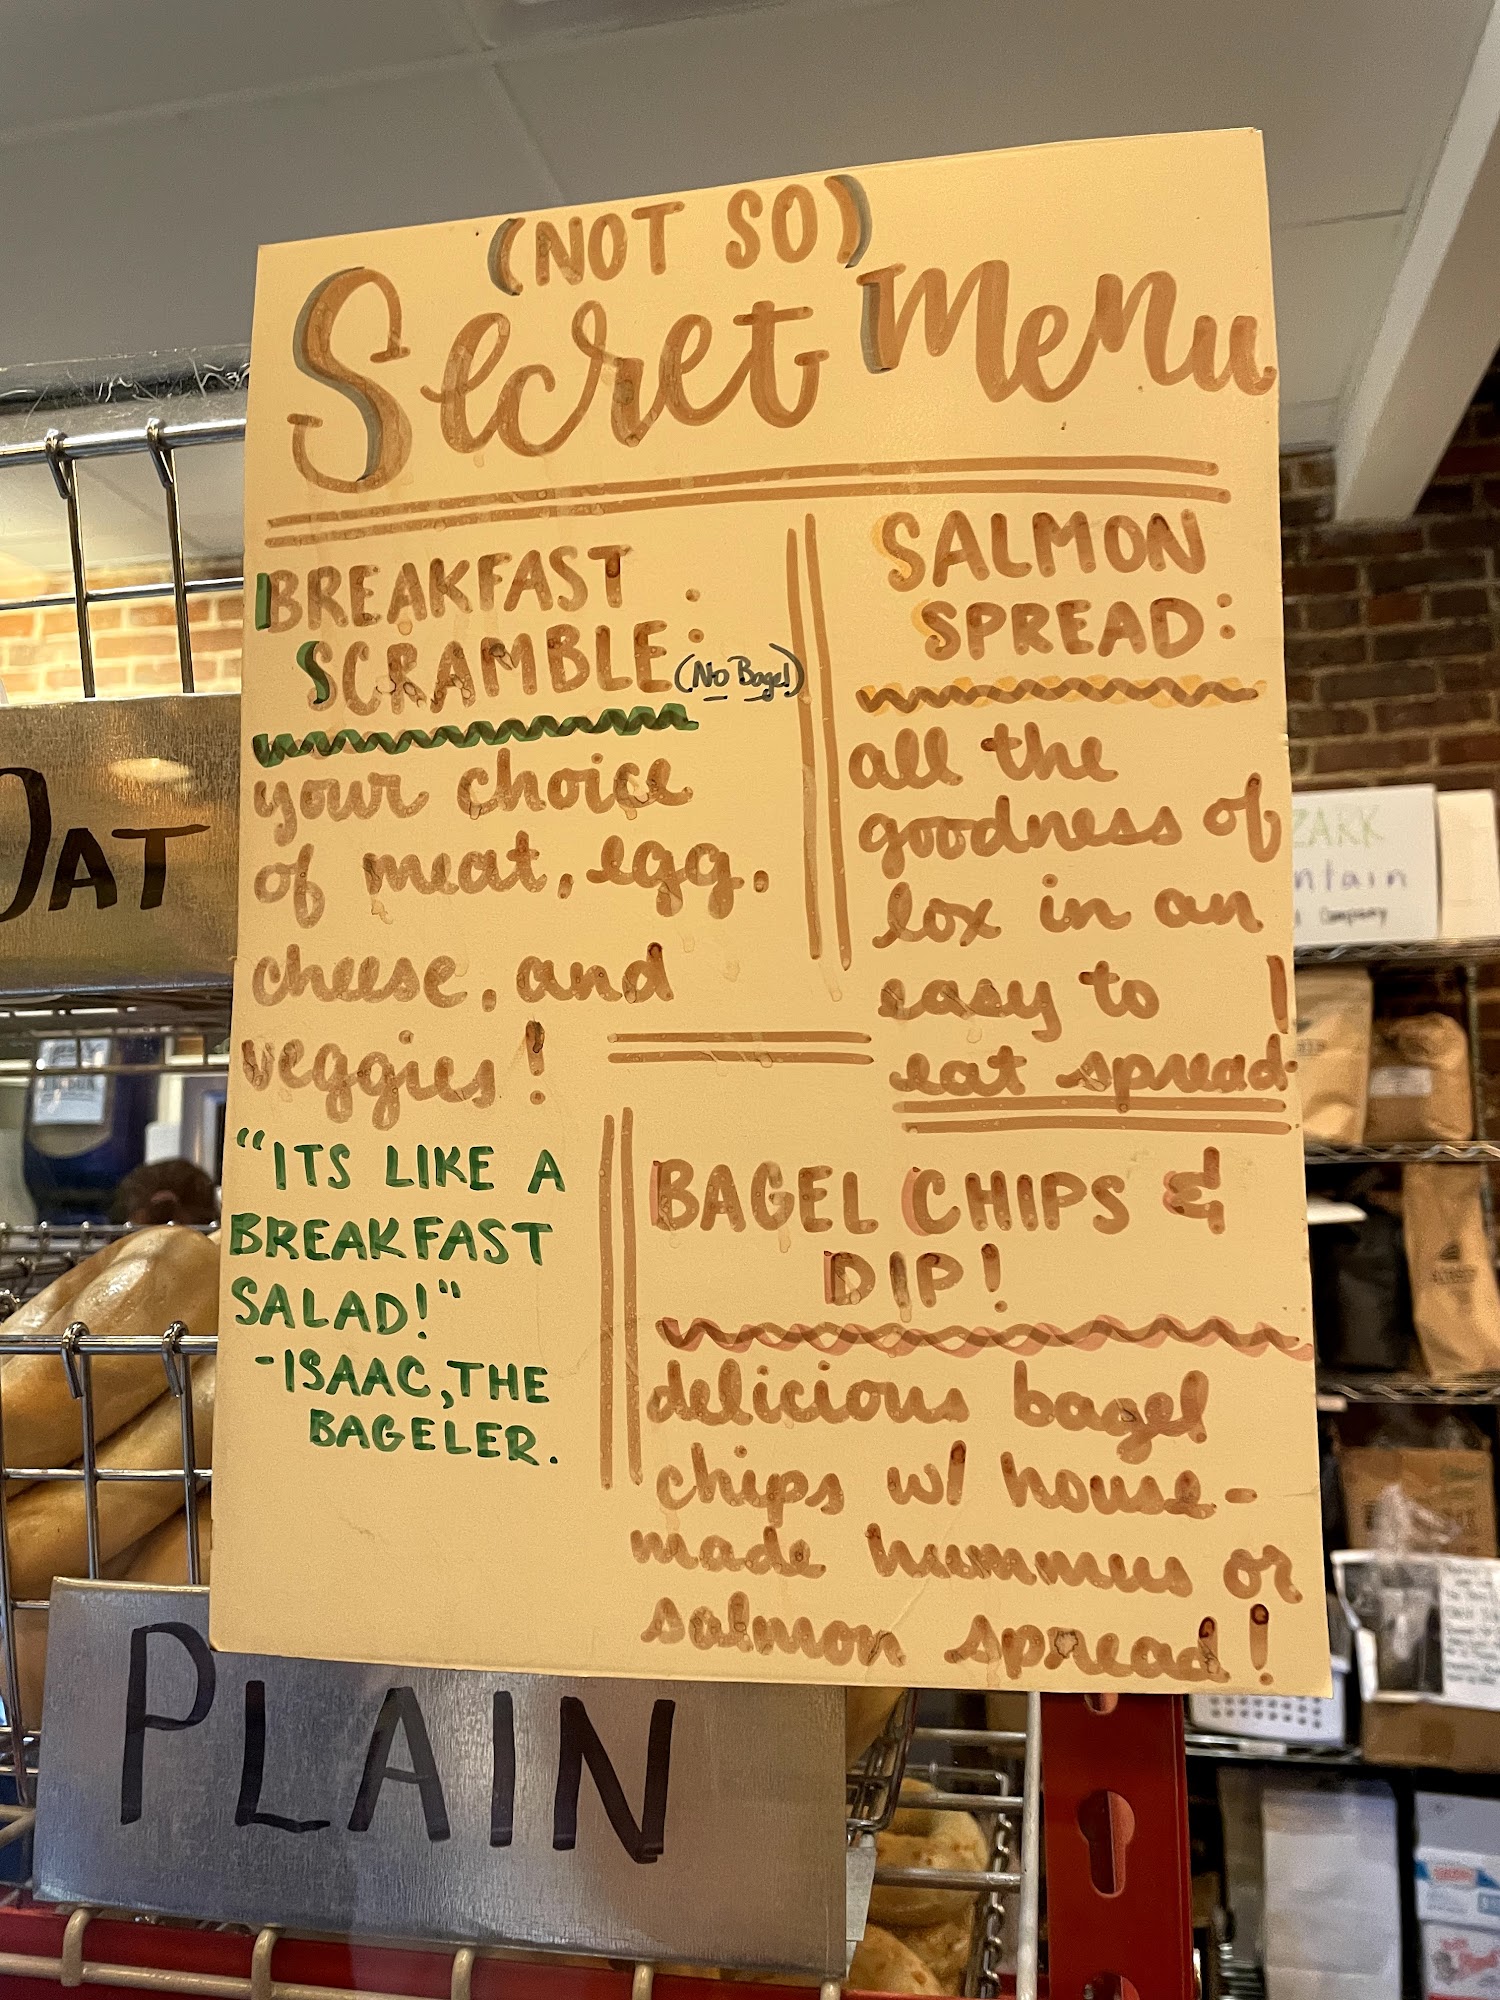 (NOT SO)
Secret Menu
BREAKFAST
SCRAMBLE:
(No Bagel)
your choice
of meat, egg,
cheese, and
veggies!
"ITS LIKE A
BREAKFAST
SALAD!"
-ISAAC, THE
BAGELER.
SALMON
SPREAD:
all the
goodness of
lox in an
easy to
eat spread.
BAGEL CHIPS &
DIP!
delicious bagel
chips w/ house-
made hummus or
salmon spread!
OAT
PLAIN
ZARK
ntain
Company